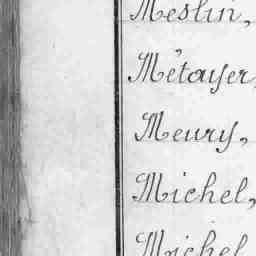 Meslin,
Métayer,
Meury,
Michel,
Michel